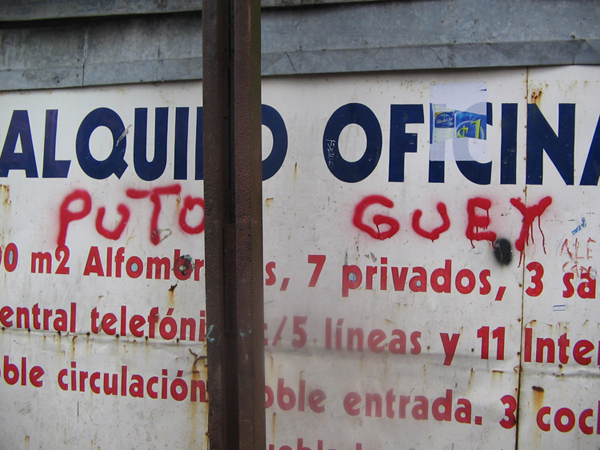 ALQUILO OFICINA
PUTO GUEY
00 m2 Alfombr s, 7 privados, 3 sa
entral telefóni /5 líneas y 11 Inter
oble circulación oble entrada. 3 coch